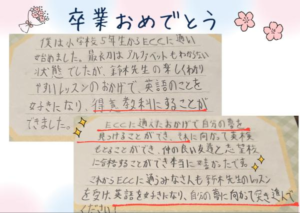 卒業おめでとう
僕は小学校5年生からECCに通い
始めました。最初はアルファベットもわからない
状態でしたが、鈴木先生の楽しくわかり
やすいレッスンのおかげで、英語のことを
好きになり、得意教科にすることが
できました。
ECCに通えたおかげで自分の夢を
見つけることができ、に向かって英検
もとることができ、仲の良い友達と志望校
に合格することができ本当に
これからECCに通うみなさんも鈴木先生のレッスン
を受け、英語を好きになり、自分の夢に向かって突き進んで
ください